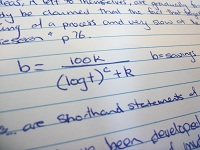 ideas, if left to themselves, are gradually
dy be claimed that the first and
ing of a process and very slow at
" p76.
b = 100k / (log t)^c + k b = saving
are shorthand statements of
have been developed